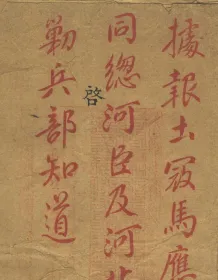 據報土寇馬應
同總河臣及河
啓
勦兵部知道